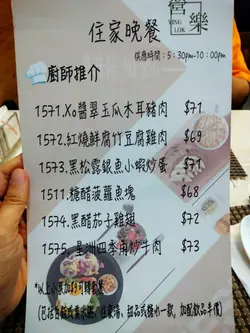 營樂
YING LOK
住家晚餐
供應時間：5:30pm-10:00pm
廚師推介
1571.Xo醬翠玉瓜木耳豬肉 $71
1572.紅燒鮮腐竹豆腐雞肉 $69
1573.黑松露銀魚小蝦炒蛋 $71
1511.糖醋菠蘿魚塊 $68
1574.黑醋茄子雞翅 $72
1575.星洲四季角炒牛肉 $73